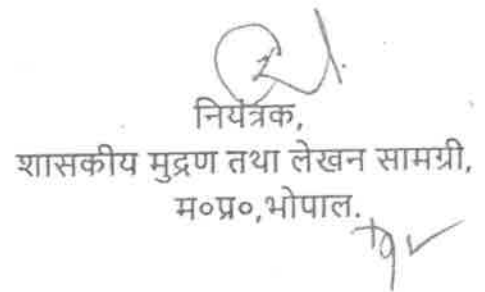 नियंत्रक,
शासकीय मुद्रण तथा लेखन सामग्री,
म०प्र०,भोपाल.